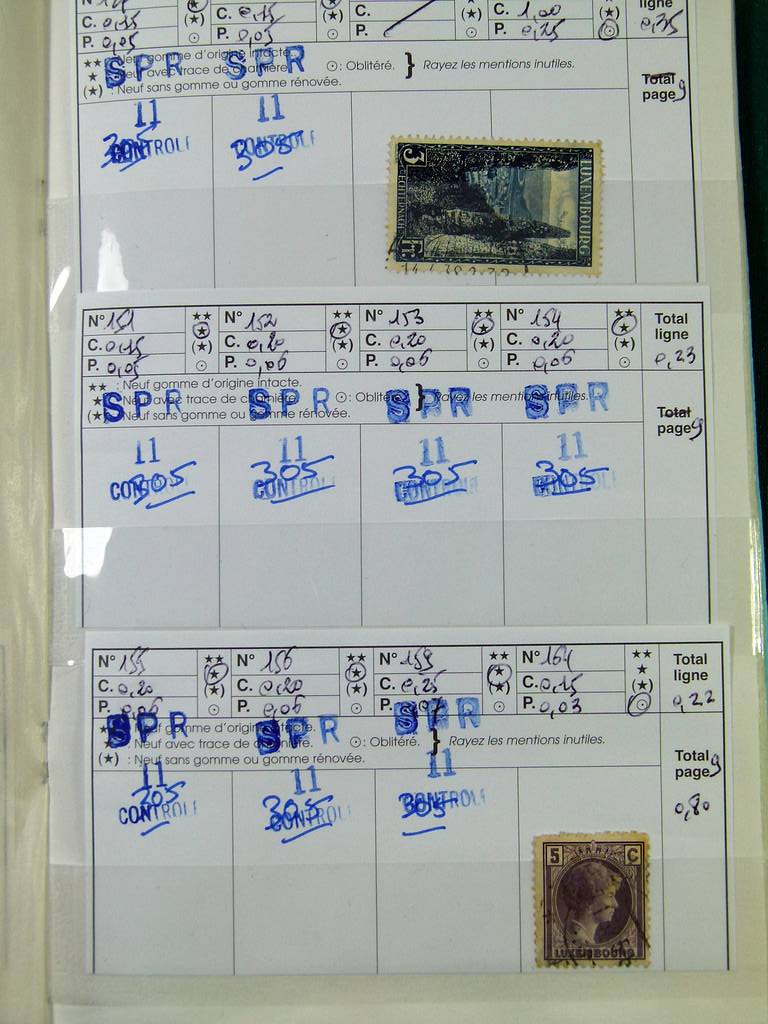 C. 0,15 (★) C. 0,15 (★) C. (★) C. 1,00 (★) ligne
P. 0,05 P. 0,05 P. P. 0,25 0,35
★★ : Neuf gomme d'origine intacte.
★ : Neuf avec trace de charnière. ⊙: Oblitéré. } Rayez les mentions inutiles.
(★) : Neuf sans gomme ou gomme rénovée.
Total page 9
SPR SPR
11 11
305 305
CONTROLE CONTROL
3 LUXEMBOURG
ECHTERNACH
Fr
N° 151 ★★ N° 152 ★★ N° 153 ★★ N° 154 ★★ Total ligne
C. 0,15 (★) C. 0,20 (★) C. 0,20 (★) C. 0,20 (★)
P. 0,05 P. 0,06 P. 0,06 P. 0,06 0,23
★★ : Neuf gomme d'origine intacte.
★ : Neuf avec trace de charnière. ⊙: Oblitéré. } Rayez les mentions inutiles.
(★) : Neuf sans gomme ou gomme rénovée.
Total page 9
SPR SPR SPR SPR
11 11 11 11
305 305 305 305
CONTROL CONTROL CONTROL CONTROL
N° 155 ★★ N° 156 ★★ N° 159 ★★ N° 164 ★★ Total ligne
C. 0,20 (★) C. 0,20 (★) C. 0,25 (★) C. 0,15 (★)
P. 0,06 P. 0,06 P. 0,07 P. 0,03 0,22
★★ : Neuf gomme d'origine intacte.
★ : Neuf avec trace de charnière. ⊙: Oblitéré. } Rayez les mentions inutiles.
(★) : Neuf sans gomme ou gomme rénovée.
Total page 9
0,80
SPR SPR SPR
11 11 11
305 305 305
CONTROL CONTROL CONTROL
5 C
LUXEMBOURG